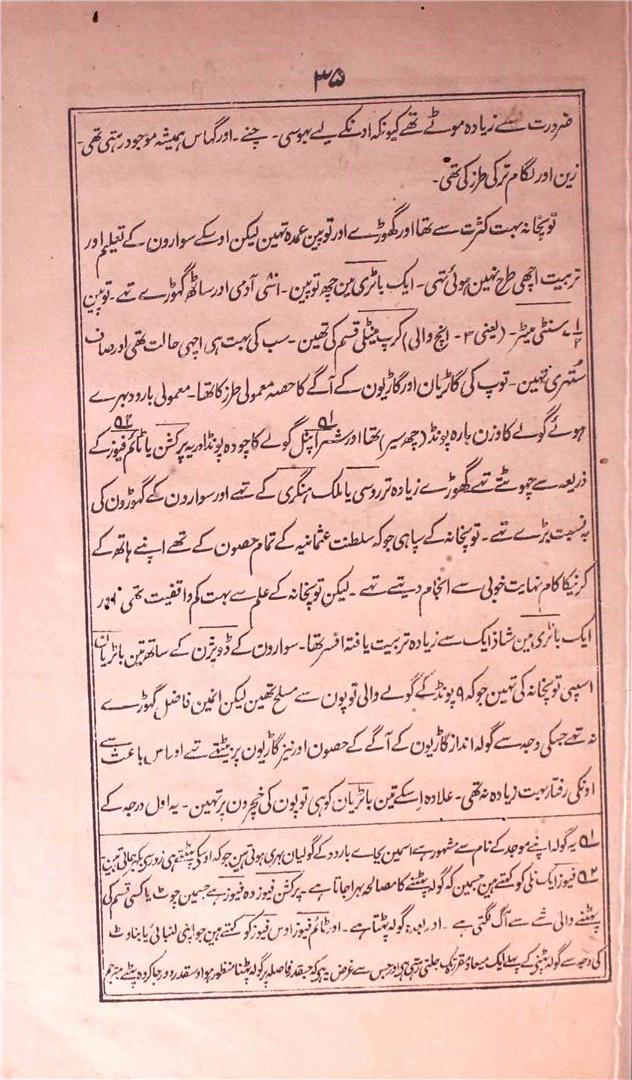 ۳۵
ضرورت سے زیادہ موٹے تھے کیونکہ اونکے لیے بہوسی - چنے - اور گھاس ہمیشہ موجود رہتی تھی -
زین اور لگام ترکی طرز کی تھی -
توپخانہ بہت کثرت سے تھا اور گھوڑے اور توپین عمدہ تہین لیکن اوسکے سوارون کے تعلیم اور
تربیت اچھی طرح نہین ہوئی تہی - ایک باٹری مین چھ توپین - انٹی آدمی اور ساٹھ گہوڑے تہے - توپین
سنٹی میٹر - (یعنی ۳ - انچ والی) کرپ مینٹلی قسم کی تھین - سب کی بہت ہی اچہی حالت تھی اور صاف
ستہری تہین - توپ کی گاڑیان اور گاڑیون کے آگے کا حصہ معمولی طرز کا تھا - معمولی بارود بہرے
ہوئے گولے کا وزن بارہ پونڈ (چھ سیر) تھا اور شراپنل ۵۱ گولے کا چودہ پونڈ اور یہ پرکشن یا ٹائم فیوز ۵۲ کے
ذریعہ سے چہوٹتے تہے گھوڑے زیادہ تر روسی یا ملک ہنگری کے تہے اور سوارون کے گہوڑون کی
بہ نسبت بڑے تہے - توپخانہ کے سپاہی جو کہ سلطنت عثمانیہ کے تمام حصون کے تھے اپنے ہاتھ کے
کرنیکا کام نہایت خوبی سے انجام دیتے تہے - لیکن توپخانہ کے علم سے بہت کم واقفیت تھی اور
ایک باٹری مین شاذ ایک سے زیادہ تربیت یافتہ افسر تھا - سوارون کے ڈویژن کے ساتھ تین باٹریان
اسپی توپخانہ کی تہین جو کہ ۹ پونڈ کے گولے والی توپون سے مسلح تھین لیکن انہین فاضل گہوڑے
نہ تہے جسکی وجہ سے گولہ انداز گاڑیون کے آگے کے حصون اور نیز گاڑیون پر بیٹہتے تہے اور اس باعث سے
اونکی رفتار بہت زیادہ نہ تھی - علاوہ اسکے تین باٹریان کوہی توپون کی خچرون پر تہین - یہ اول درجہ کے
۵۱ یہ گولہ اپنے موجد کے نام سے مشہور ہے اسمین بجاے بارود کے گولیان بہری ہوتی ہین جو کہ اوسکی پہٹتے ہی زور سی بکہر جاتی ہین
۵۲ فیوز ایک نلی کو کہتے ہین جسمین کہ گولہ پہٹنے کا مصالحہ بہرا جاتا ہے - پرکشن فیوز وہ فیوز ہے جسمین چوٹ یا کسی قسم کی
پہٹنے والی شے سے آگ لگتی ہے - اور بعدہ گولہ پہٹتا ہے - اور ٹائم فیوز اوس فیوز کو کہتے ہین جو اپنی لنبائی یا بناوٹ
کی وجہ سے گولہ پہٹنی کے پہلے ایک میعاد مقررہ تک جلتی رہتی ہی اور جس سے غرض یہ ہی کہ جسقدر فاصلہ پر گولہ پہٹنا منظور ہو اوسقدر دور جا کر وہ پہٹے مترجم